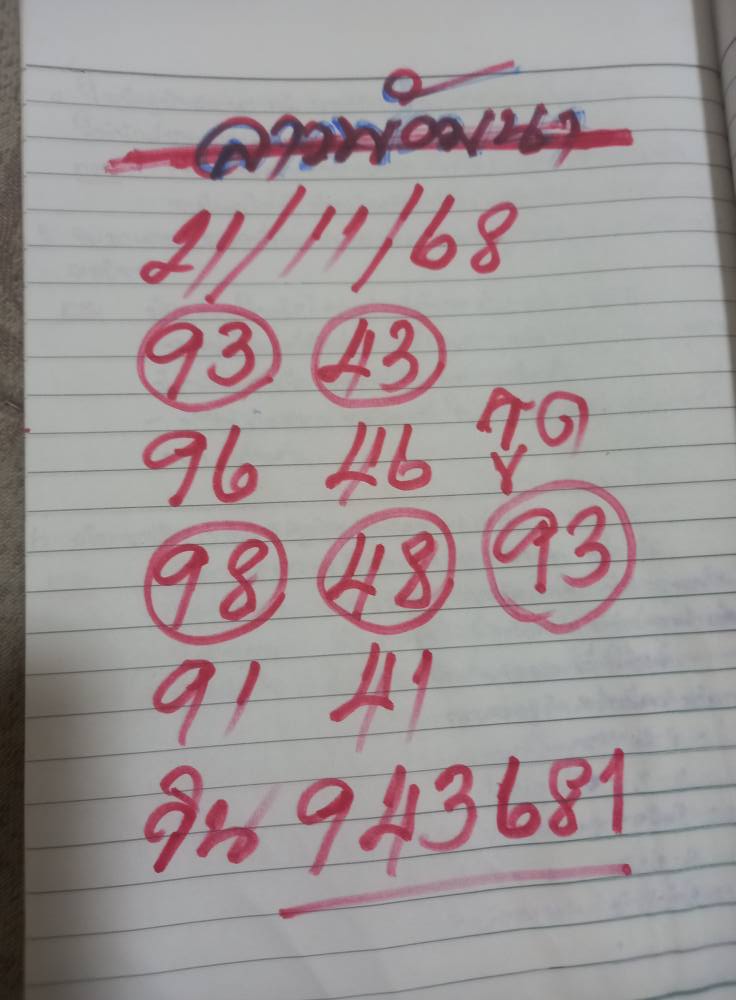 ลาวพัฒนา
21/11/68
93 43
96 46 รูด
98 48 93
91 41
วิน 943681